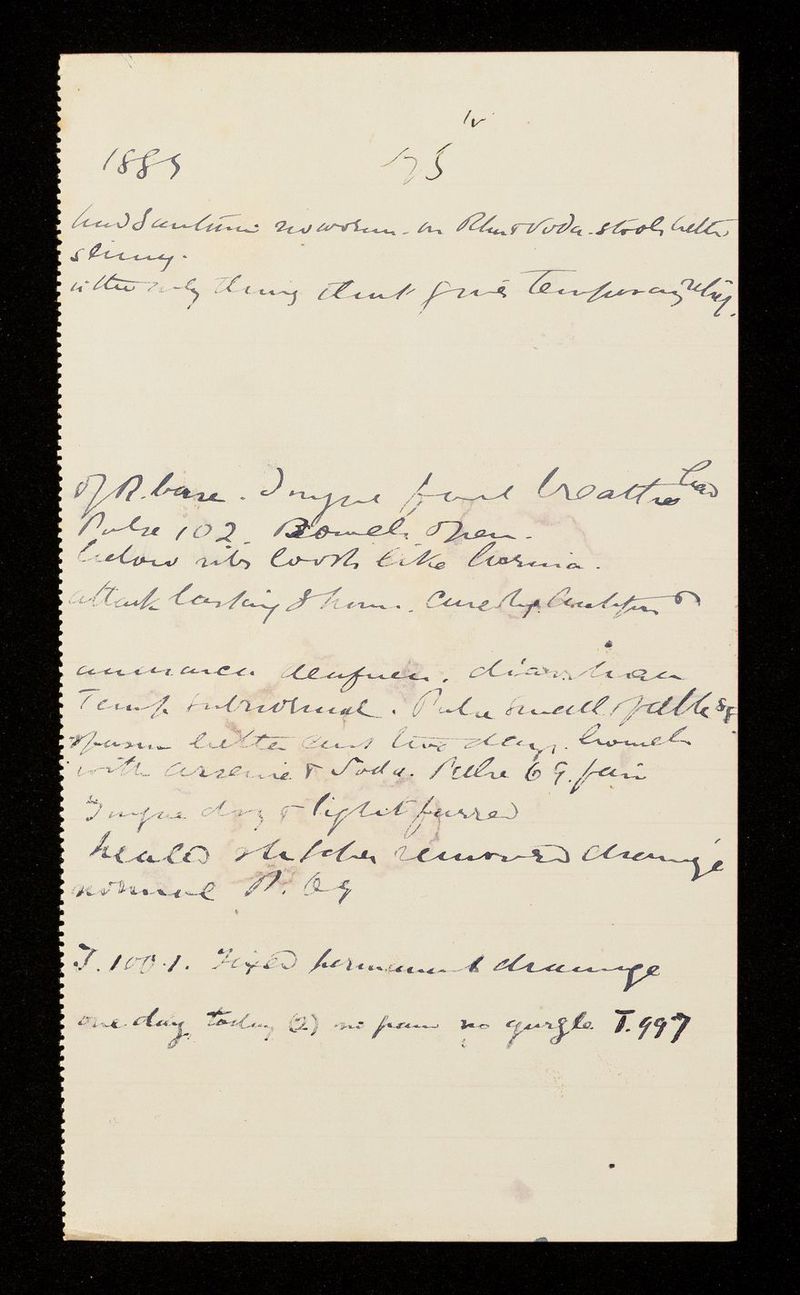 1885
had Santonin no worm - on Rhu & Soda - stools better
slimy.
is the only thing that gives temporary relief.
of R. base. Tongue foul breath bad
Pulse 102. Bowels open.
below ribs looks like hernia.
attack lasting 8 hours. cured by
deafness. diarrhoea
Temp subnormal. Pulse small
spasm better last two days. bowels
with arsenic & Soda. Pulse 69. fair
Tongue dry & light furred
healed stitches removed drainage
normal P. 69
T. 100.1. Fixed permanent drainage
one day, today (2) no pain no gurgle T. 997